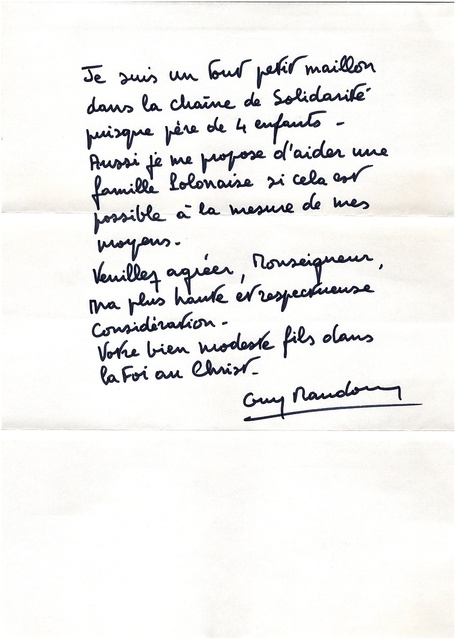 Je suis un tout petit maillon
dans la chaîne de Solidarité
puisque père de 4 enfants -
Aussi je me propose d'aider une
famille Polonaise si cela est
possible à la mesure de mes
moyens.
Veuillez agréer, Monseigneur,
ma plus haute et respectueuse
Considération -
Votre bien modeste fils dans
la Foi au Christ.
Guy